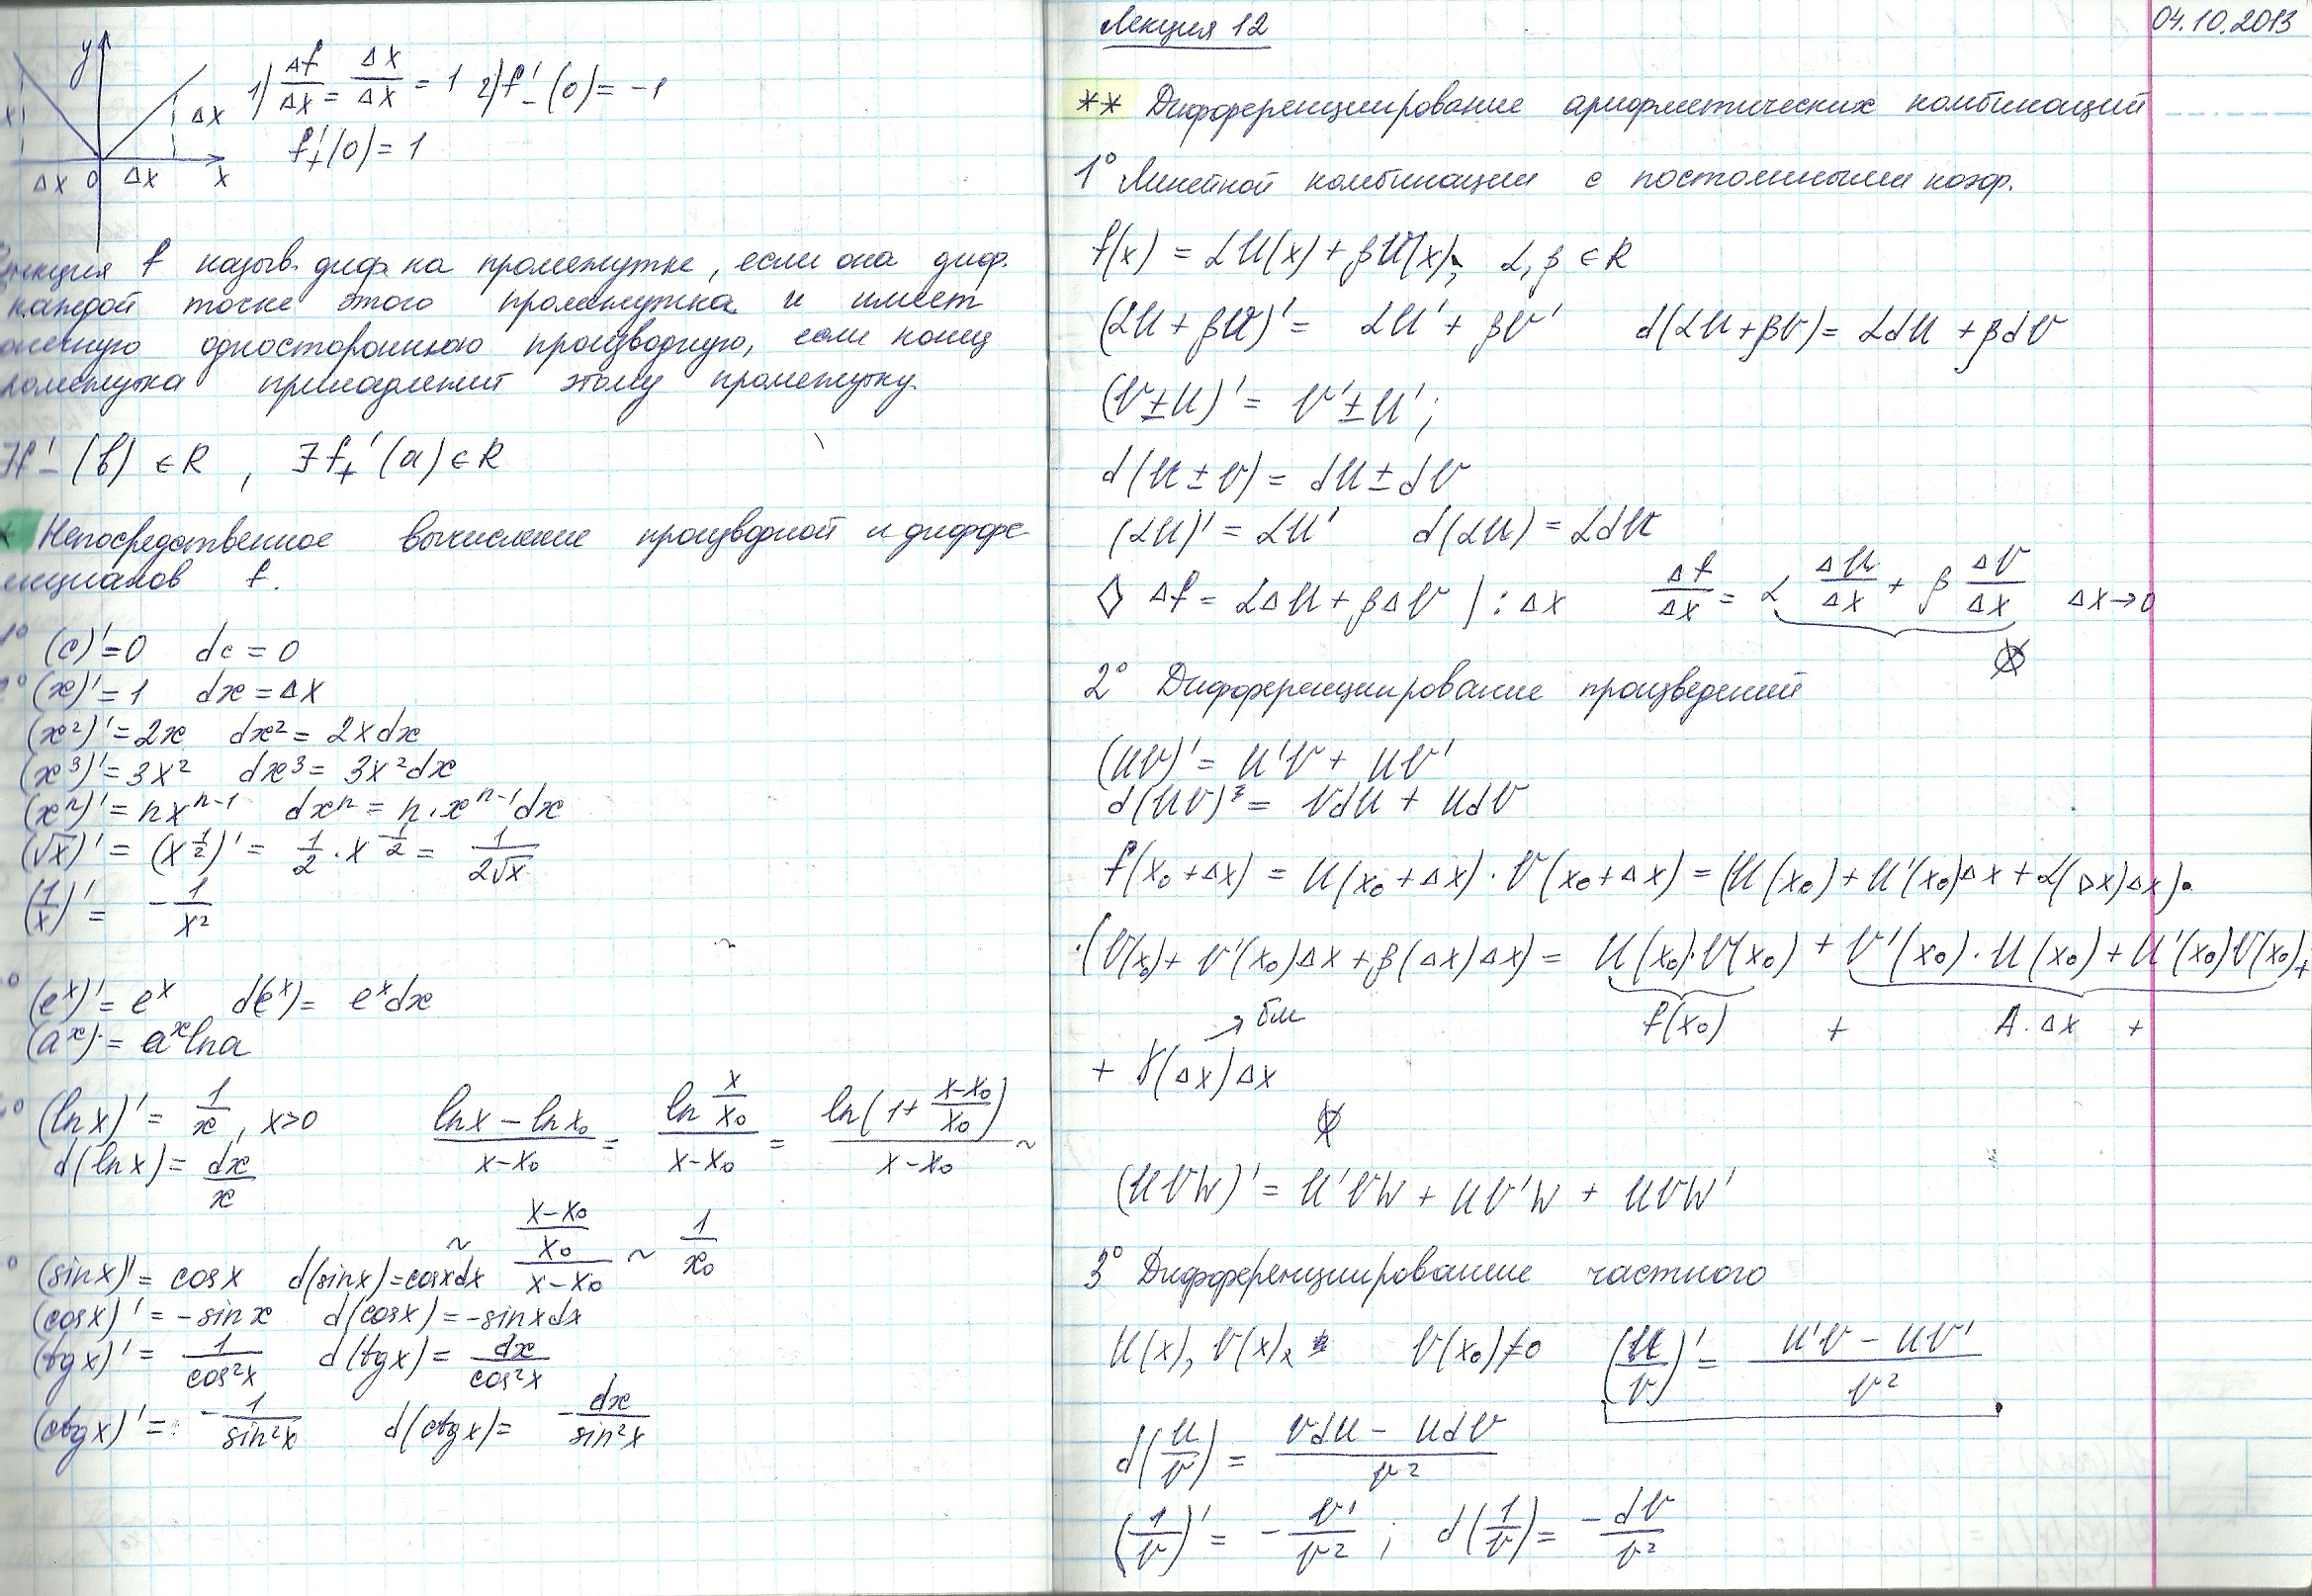 y
1) Δf/Δx = Δx/Δx = 1 2) f'₋(0) = -1
Δx
f'₊(0) = 1
Δx 0 Δx x
f назыв. диф. на промежутке, если она диф.
каждой точке этого промежутка и имеет
одностороннюю производную, если конец
принадлежит этому промежутку.
∃f'₋(b) ∈ R , ∃f₊'(a) ∈ R
* Непосредственное вычисление производной и диффере
нциалов f.
1° (c)' = 0 dc = 0
2° (x)' = 1 dx = Δx
(x²)' = 2x dx² = 2xdx
(x³)' = 3x² dx³ = 3x²dx
(xⁿ)' = nxⁿ⁻¹ dxⁿ = n·xⁿ⁻¹dx
(√x)' = (x^½)' = 1/2 · x^-½ = 1/(2√x)
(1/x)' = -1/x²
(eˣ)' = eˣ d(eˣ) = eˣdx
(aˣ)' = aˣ ln a
(ln x)' = 1/x, x>0 (ln x - ln x₀)/(x-x₀) = (ln x/x₀)/(x-x₀) = ln(1 + (x-x₀)/x₀)/(x-x₀) ~
d(ln x) = dx/x
~ ((x-x₀)/x₀)/(x-x₀) ~ 1/x₀
(sin x)' = cos x d(sin x) = cosxdx
(cos x)' = -sin x d(cos x) = -sinxdx
(tg x)' = 1/cos²x d(tg x) = dx/cos²x
(ctg x)' = -1/sin²x d(ctg x) = -dx/sin²x
Лекция 12 04.10.2013
** Дифференциирование арифметических комбинаций
1° Линейной комбинации с постоянными коэф.
f(x) = αU(x) + βV(x); α, β ∈ R
(αU + βV)' = αU' + βV' d(αU + βV) = αdU + βdV
(V ± U)' = V' ± U';
d(U ± V) = dU ± dV
(αU)' = αU' d(αU) = αdU
◊ Δf = αΔU + βΔV | : Δx Δf/Δx = α ΔU/Δx + β ΔV/Δx Δx→0
2° Дифференциирование произведений
(UV)' = U'V + UV'
d(UV) = VdU + UdV
f(x₀+Δx) = U(x₀+Δx)·V(x₀+Δx) = (U(x₀) + U'(x₀)Δx + α(Δx)Δx)·
·(V(x₀) + V'(x₀)Δx + β(Δx)Δx) = U(x₀)·V(x₀) + V'(x₀)·U(x₀) + U'(x₀)V(x₀) +
→ бм f(x₀) + A·Δx +
+ γ(Δx)Δx
(UVW)' = U'VW + UV'W + UVW'
3° Дифференциирование частного
U(x), V(x), V(x₀)≠0 (U/V)' = (U'V - UV')/V²
d(U/V) = (VdU - UdV)/V²
(1/V)' = -V'/V² ; d(1/V) = -dV/V²